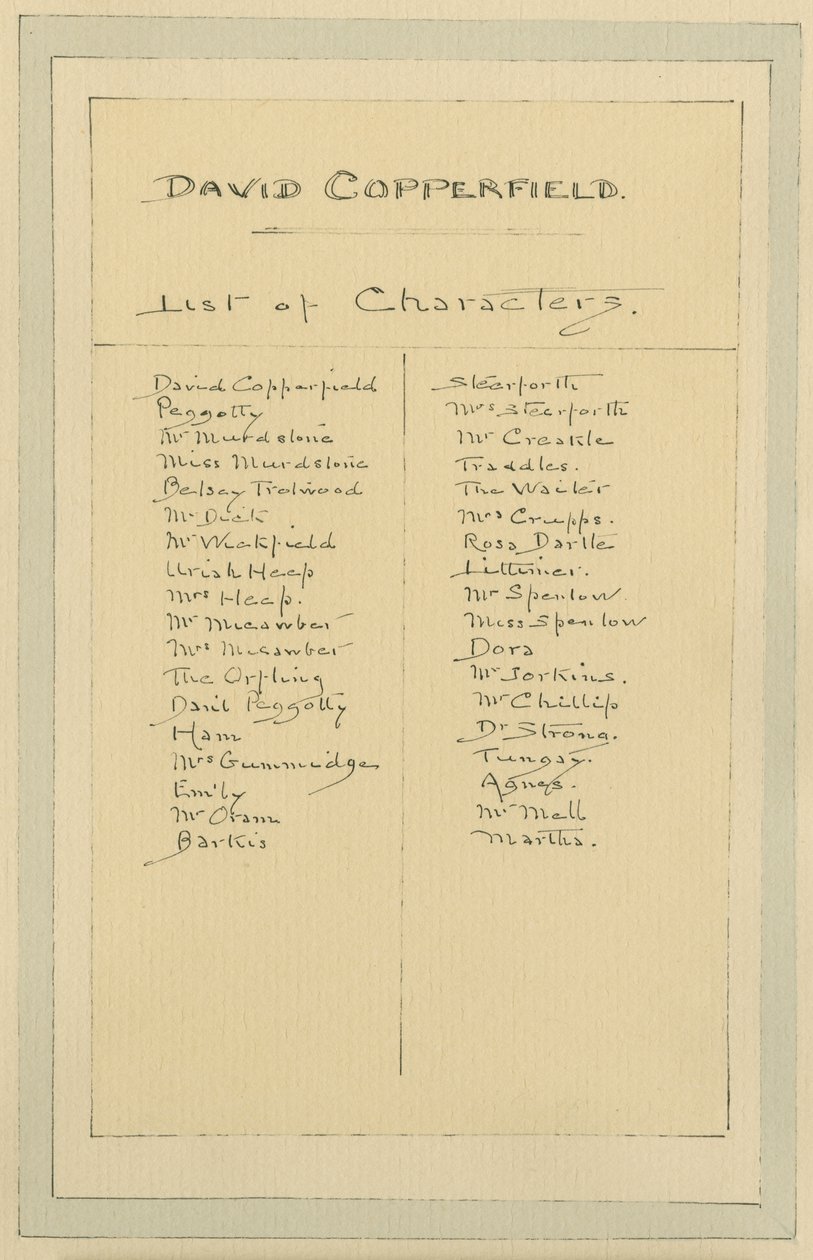 DAVID COPPERFIELD.
List of Characters.
David Copperfield
Peggotty
Mr Murdstone
Miss Murdstone
Betsey Trotwood
Mr Dick
Mr Wickfield
Uriah Heep
Mrs Heep.
Mr Micawber
Mrs Micawber
The Orfling
Danl Peggotty
Ham
Mrs Gummidge
Em'ly
Mr Oram
Barkis
Steerforth
Mrs Steerforth
Mr Creakle
Traddles.
The Waiter
Mrs Crupps.
Rosa Dartle
Littimer.
Mr Spenlow.
Miss Spenlow
Dora
Mr Jorkins.
Mr Chillip
Dr Strong.
Tungay.
Agnes.
Mr Mell
Martha.